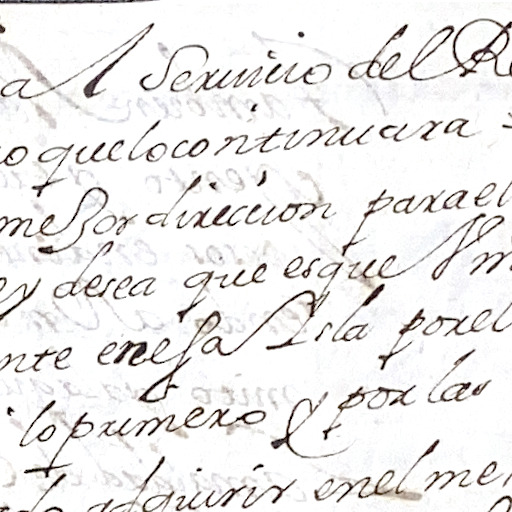 a Al Servicio del Re
o que lo continuara
mejor dirección para el
ey desea que es que Vm
nte en esa Isla por el
lo primero y por las
adquirir en el me